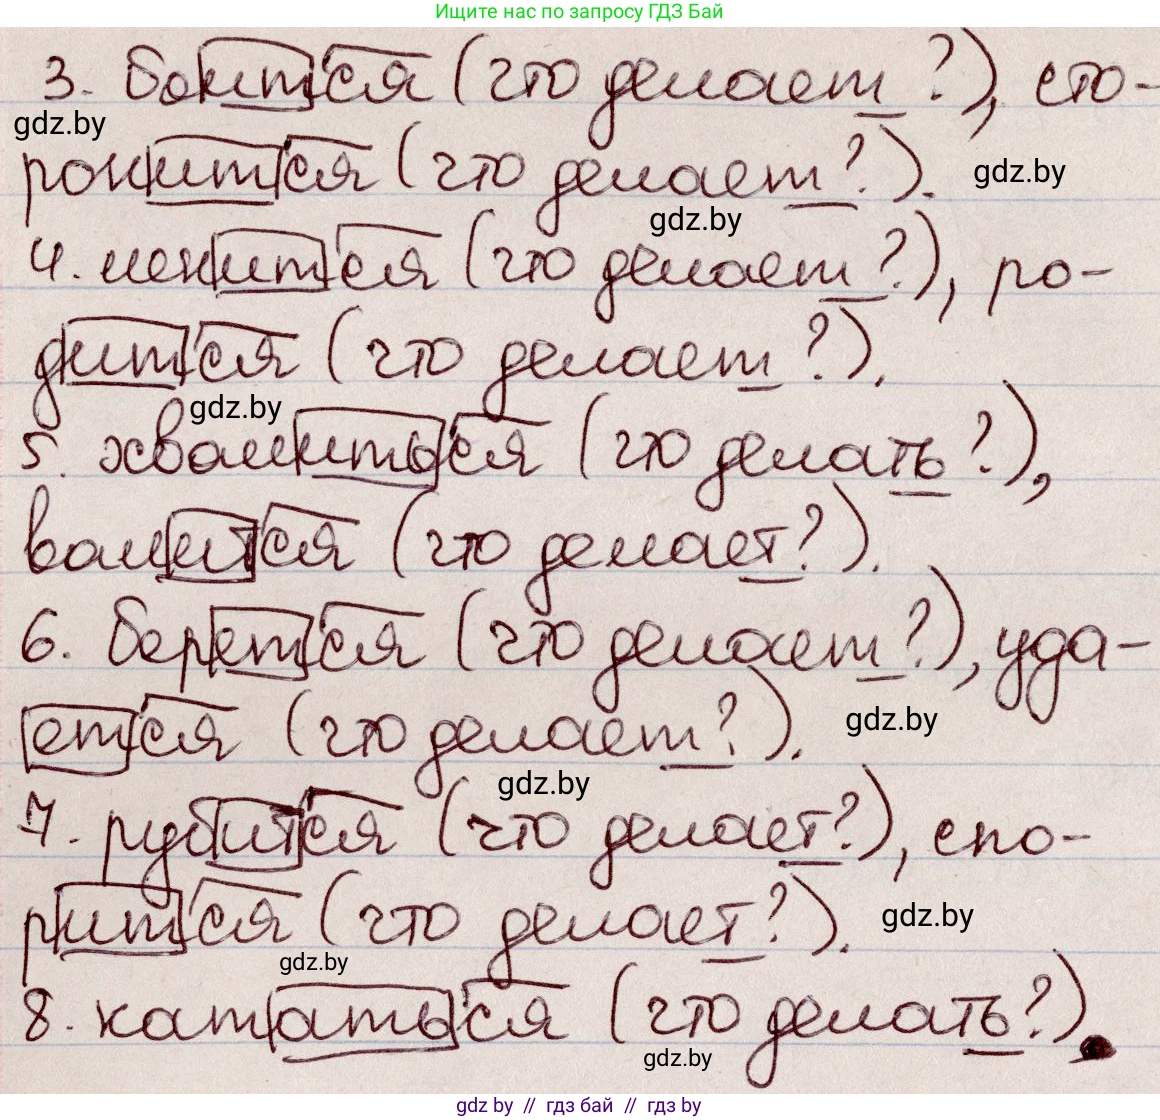 Ищите нас по запросу ГДЗ Бай
3. боится (что делает?), сто-
gdz.by
ронится (что делает?).
gdz.by
gdz.by
4. ценится (что делает?), ро-
дится (что делает?).
gdz.by
5. хвалиться (что делать?),
валится (что делает?).
6. берется (что делает?), уда-
ется (что делает?).
gdz.by
gdz.by
7. рубится (что делает?), спо-
рится (что делает?).
gdz.by
gdz.by
8. кататься (что делать?).
gdz.by
gdz by // гдз бай // гдз by